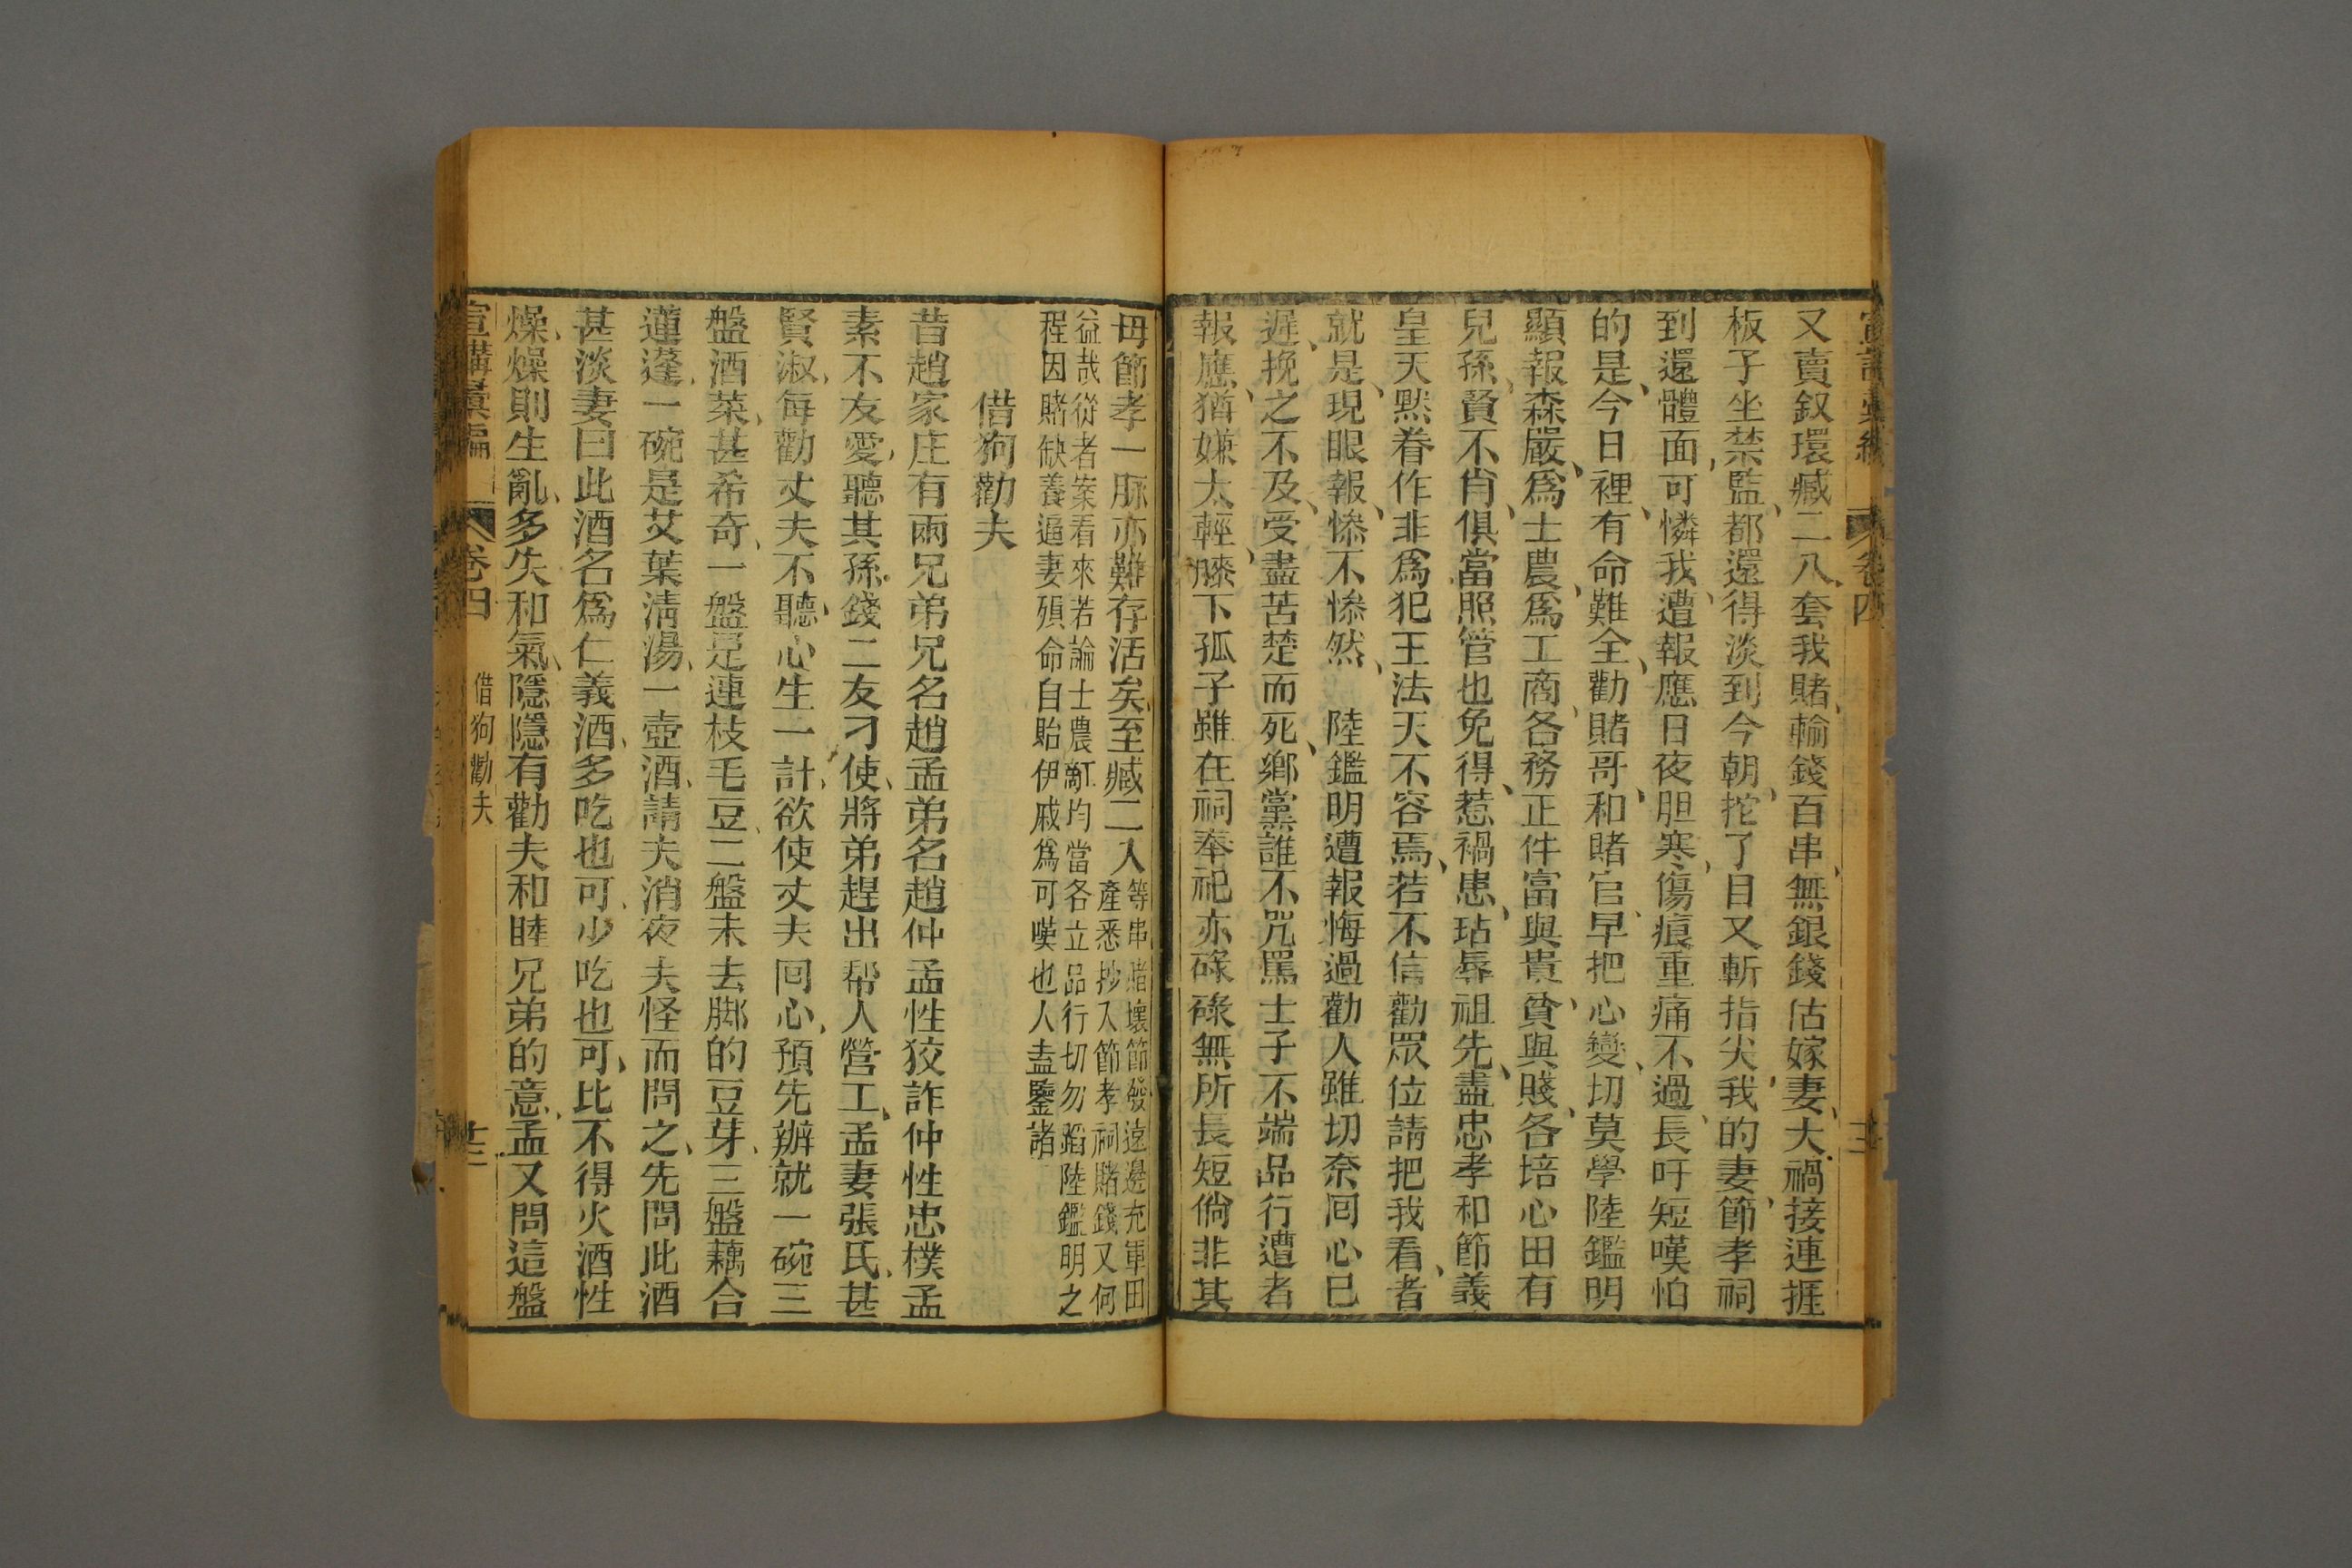 宣講彙編
卷四
又賣釵環臧二八套我賭輸錢百串無銀錢估嫁妻大禍接連捱
板子坐禁監都還得淡到今朝挖了目又斬指尖我的妻節孝祠
到還體面可憐我遭報應日夜胆寒傷痕重痛不過長吁短嘆怕
的是今日裡有命難全勸賭哥和賭官早把心變切莫學陸鑑明
顯報森嚴爲士農爲工商各務正件富與貴貧與賤各培心田有
兒孫賢不肖俱當照管也免得惹禍患玷辱祖先盡忠孝和節義
皇天黙眷作非爲犯王法天不容焉若不信勸眾位請把我看者
就是現眼報慘不慘然 陸鑑明遭報悔過勸人雖切奈囘心巳
遲挽之不及受盡苦楚而死鄉黨誰不咒罵士子不端品行遭者
報應猶嫌太輕膝下孤子雖在祠奉祀亦碌碌無所長短倘非其
母節孝一脉亦難存活矣至臧二人等串賭壞節發遠邊充軍田
產悉抄入節孝祠賭錢又何
益哉從者案看來若論士農工均當各立品行切勿蹈陸鑑明之
程因賭缺養逼妻殞命自貽伊戚爲可嘆也人盍鑒諸
借狗勸夫
昔趙家庄有兩兄弟兄名趙孟弟名趙仲孟性狡詐仲性忠樸孟
素不友愛聽其孫錢二友刁使將弟趕出帮人營工孟妻張氏甚
賢淑每勸丈夫不聽心生一計欲使丈夫囘心預先辦就一碗三
盤酒菜甚希奇一盤是連枝毛豆二盤未去脚的豆芽三盤藕合
蓮蓬一碗是艾葉清湯一壺酒請夫消夜夫怪而問之先問此酒
甚淡妻曰此酒名爲仁義酒多吃也可少吃也可比不得火酒性
燥燥則生亂多失和氣隱隱有勸夫和睦兄弟的意孟又問這盤
宣講彙編
卷四
借狗勸夫